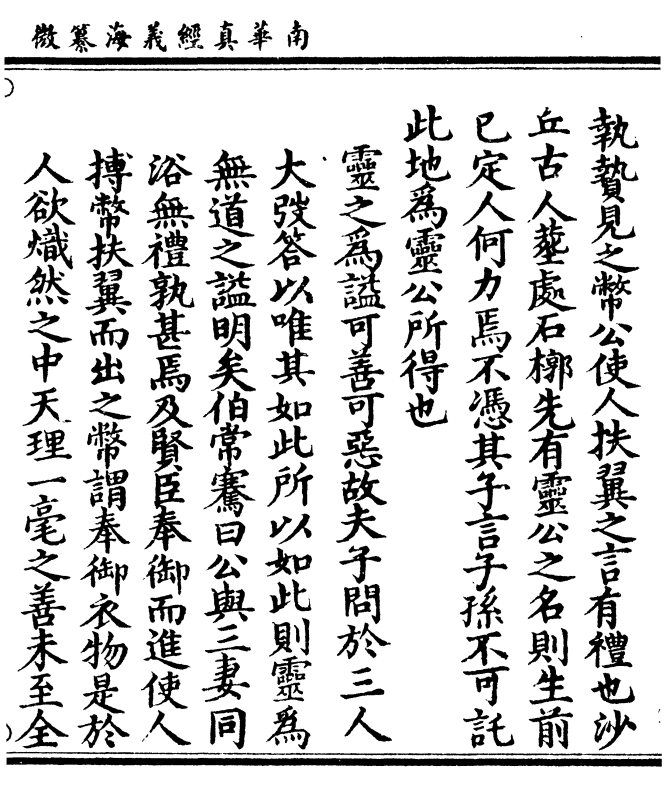 南華真經義海纂微
執贄見之幣公使人扶翼之言有禮也沙
丘古人塟處石槨先有靈公之名則生前
已定人何力焉不憑其子言子孫不可託
此地為靈公所得也
靈之為謚可善可惡故夫子問於三人
大弢答以唯其如此所以如此則靈為
無道之謚明矣伯常騫曰公與三妻同
浴無禮孰甚焉及賢臣奉御而進使人
搏幣扶翼而出之幣謂奉御衣物是於
人欲熾然之中天理一毫之善未至全